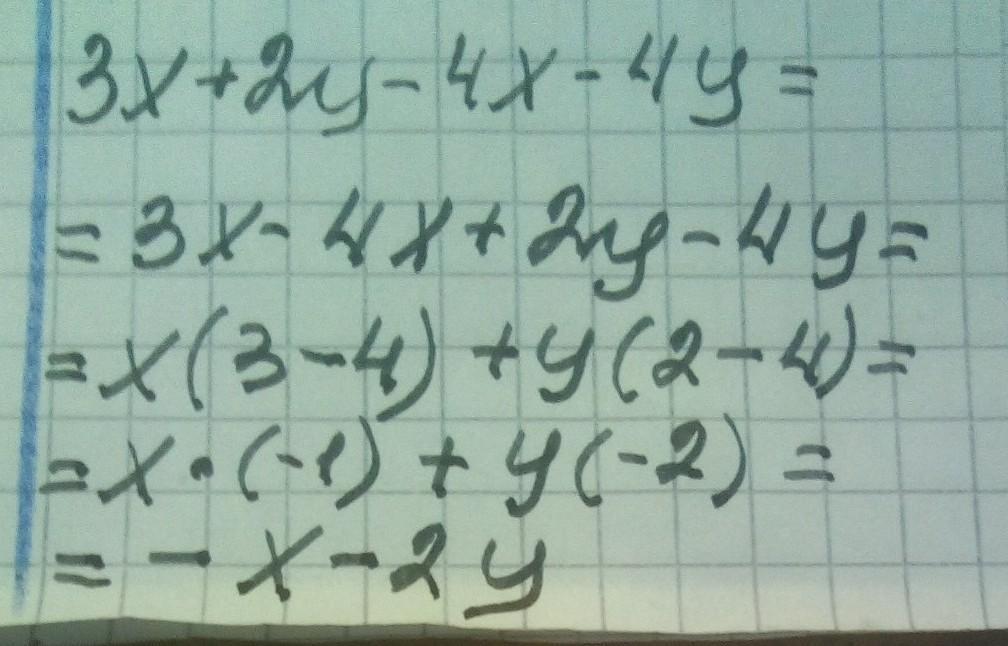 3x+2y-4x-4y=
=3x-4x+2y-4y=
=x(3-4)+y(2-4)=
=x·(-1)+y(-2)=
=-x-2y